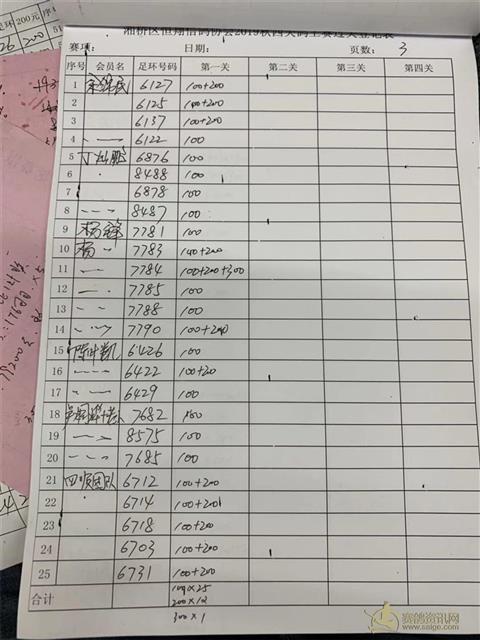 湘桥区恒翔信鸽协会2019秋四关鸽王赛过关登记表
赛项： 日期： 页数： 3
序号 会员名 足环号码 第一关 第二关 第三关 第四关
1 6127 100+200
2 6125 100+200
3 6137 100+200
4 6122 100
5 6876 100
6 8488 100
7 6878 100
8 8487 100
9 杨锋 7781 100
10 杨 7783 100+200
11 7784 100+200+300
12 7785 100
13 7788 100
14 7790 100+200
15 陈叶凯 6426 100
16 6422 100+200
17 6429 100
18 7682 100
19 8575 100
20 7685 100
21 四顺团队 6712 100+200
22 6714 100+200
23 6718 100+200
24 6703 100+200
25 6731 100+200
合计 100×25
200×12
300×1
赛鸽资讯网
www.saige.com